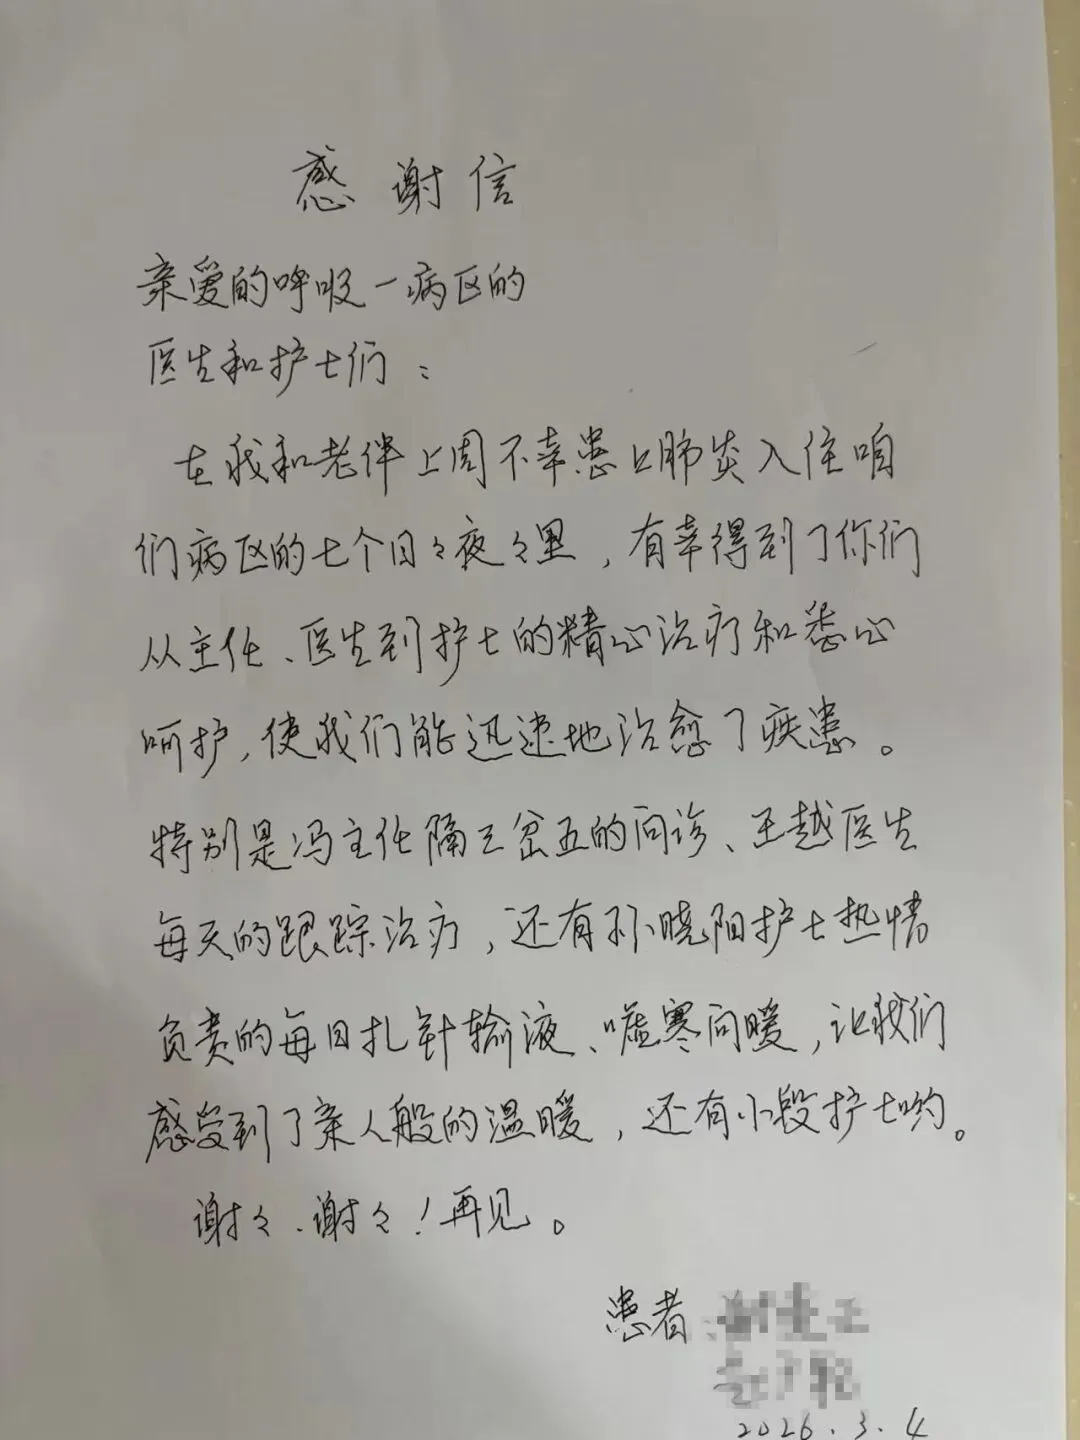 感谢信
亲爱的呼吸一病区的
医生和护士们：
在我和老伴上周不幸患上肺炎入住咱
们病区的七个日々夜々里，有幸得到了你们
从主任、医生到护士的精心治疗和悉心
呵护，使我们能迅速地治愈了疾患。
特别是冯主任隔三岔五的问诊、王越医生
每天的跟踪治疗，还有孙晓阳护士热情
负责的每日扎针输液、嘘寒问暖，让我们
感受到了亲人般的温暖，还有小段护士哟。
谢々、谢々！再见。
患者：
2026.3.4